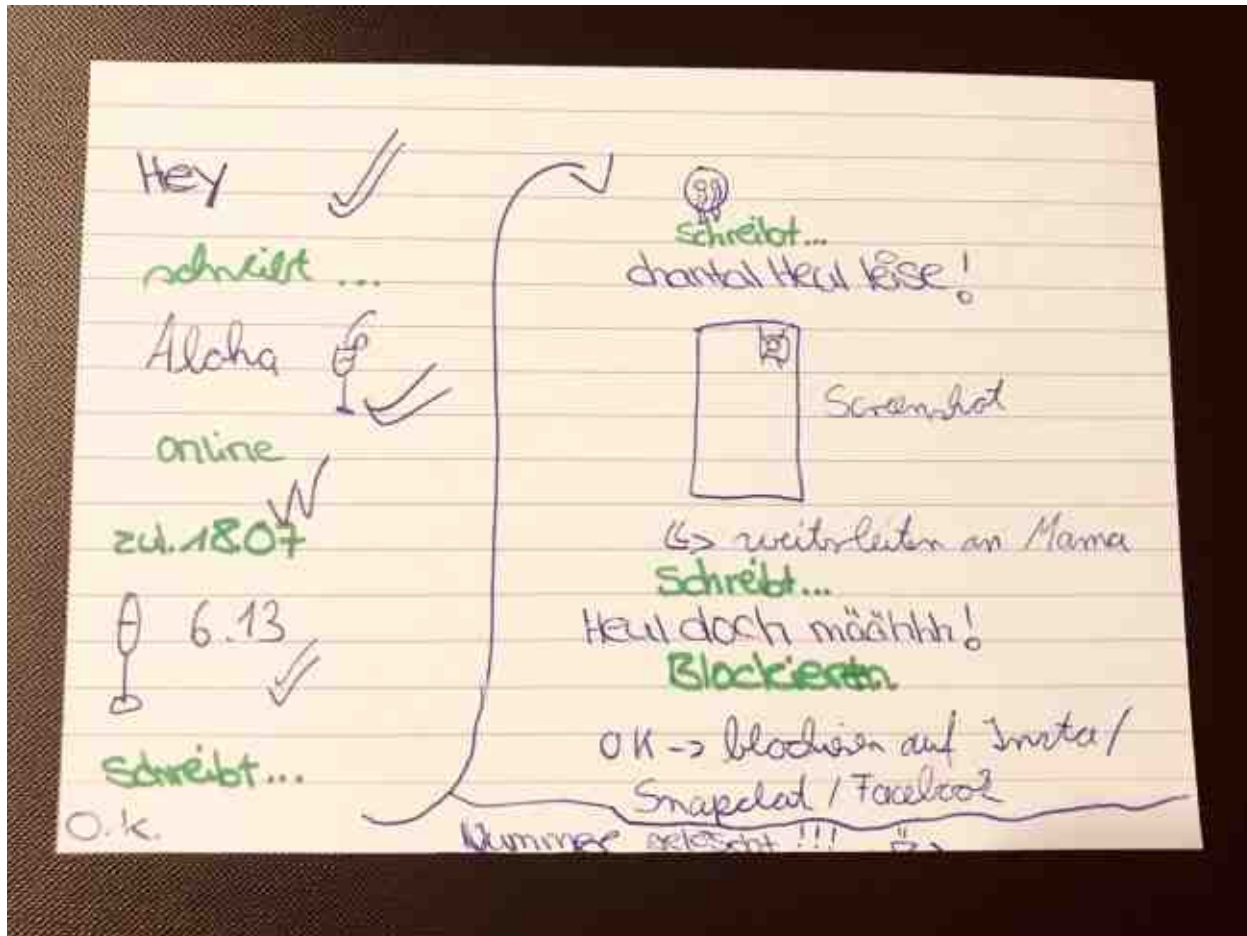 Hey
schreibt ...
Aloha
online
zul. 18.07
6.13
schreibt ...
O.k.
schreibt...
chantal Heul leise!
Screenshot
weiterleiten an Mama
Schreibt...
Heul doch määhhh!
Blockieren
OK -> blockieren auf Insta/
Snapchat / Facebook
Nummer gelöscht !!!